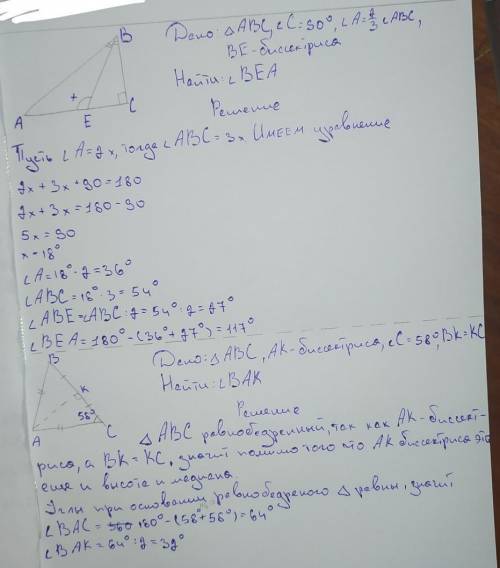 B
Дано: △ABC, ∠C=90°, ∠A=2/3 ∠ABC,
BE-биссектриса
Найти: ∠BEA
A E C
Решение
Пусть ∠A=2x, тогда ∠ABC=3x Имеем уравнение
2x+3x+90=180
2x+3x=180-90
5x=90
x=18°
∠A=18°·2=36°
∠ABC=18°·3=54°
∠ABE=∠ABC:2=54°:2=27°
∠BEA=180°-(36°+27°)=117°
B
Дано: △ABC, AK-биссектриса, ∠C=58°, BK=KC
K
Найти: ∠BAK
58°
Решение
A C
△ABC равнобедренный, так как AK-биссект-
риса, а BK=KC, значит помимо того что AK биссектриса это
еще и высота и медиана
Углы при основании равнобедреного △ равны, значит
∠BAC= 180°-(58°+58°)=64°
∠BAK=64°:2=32°